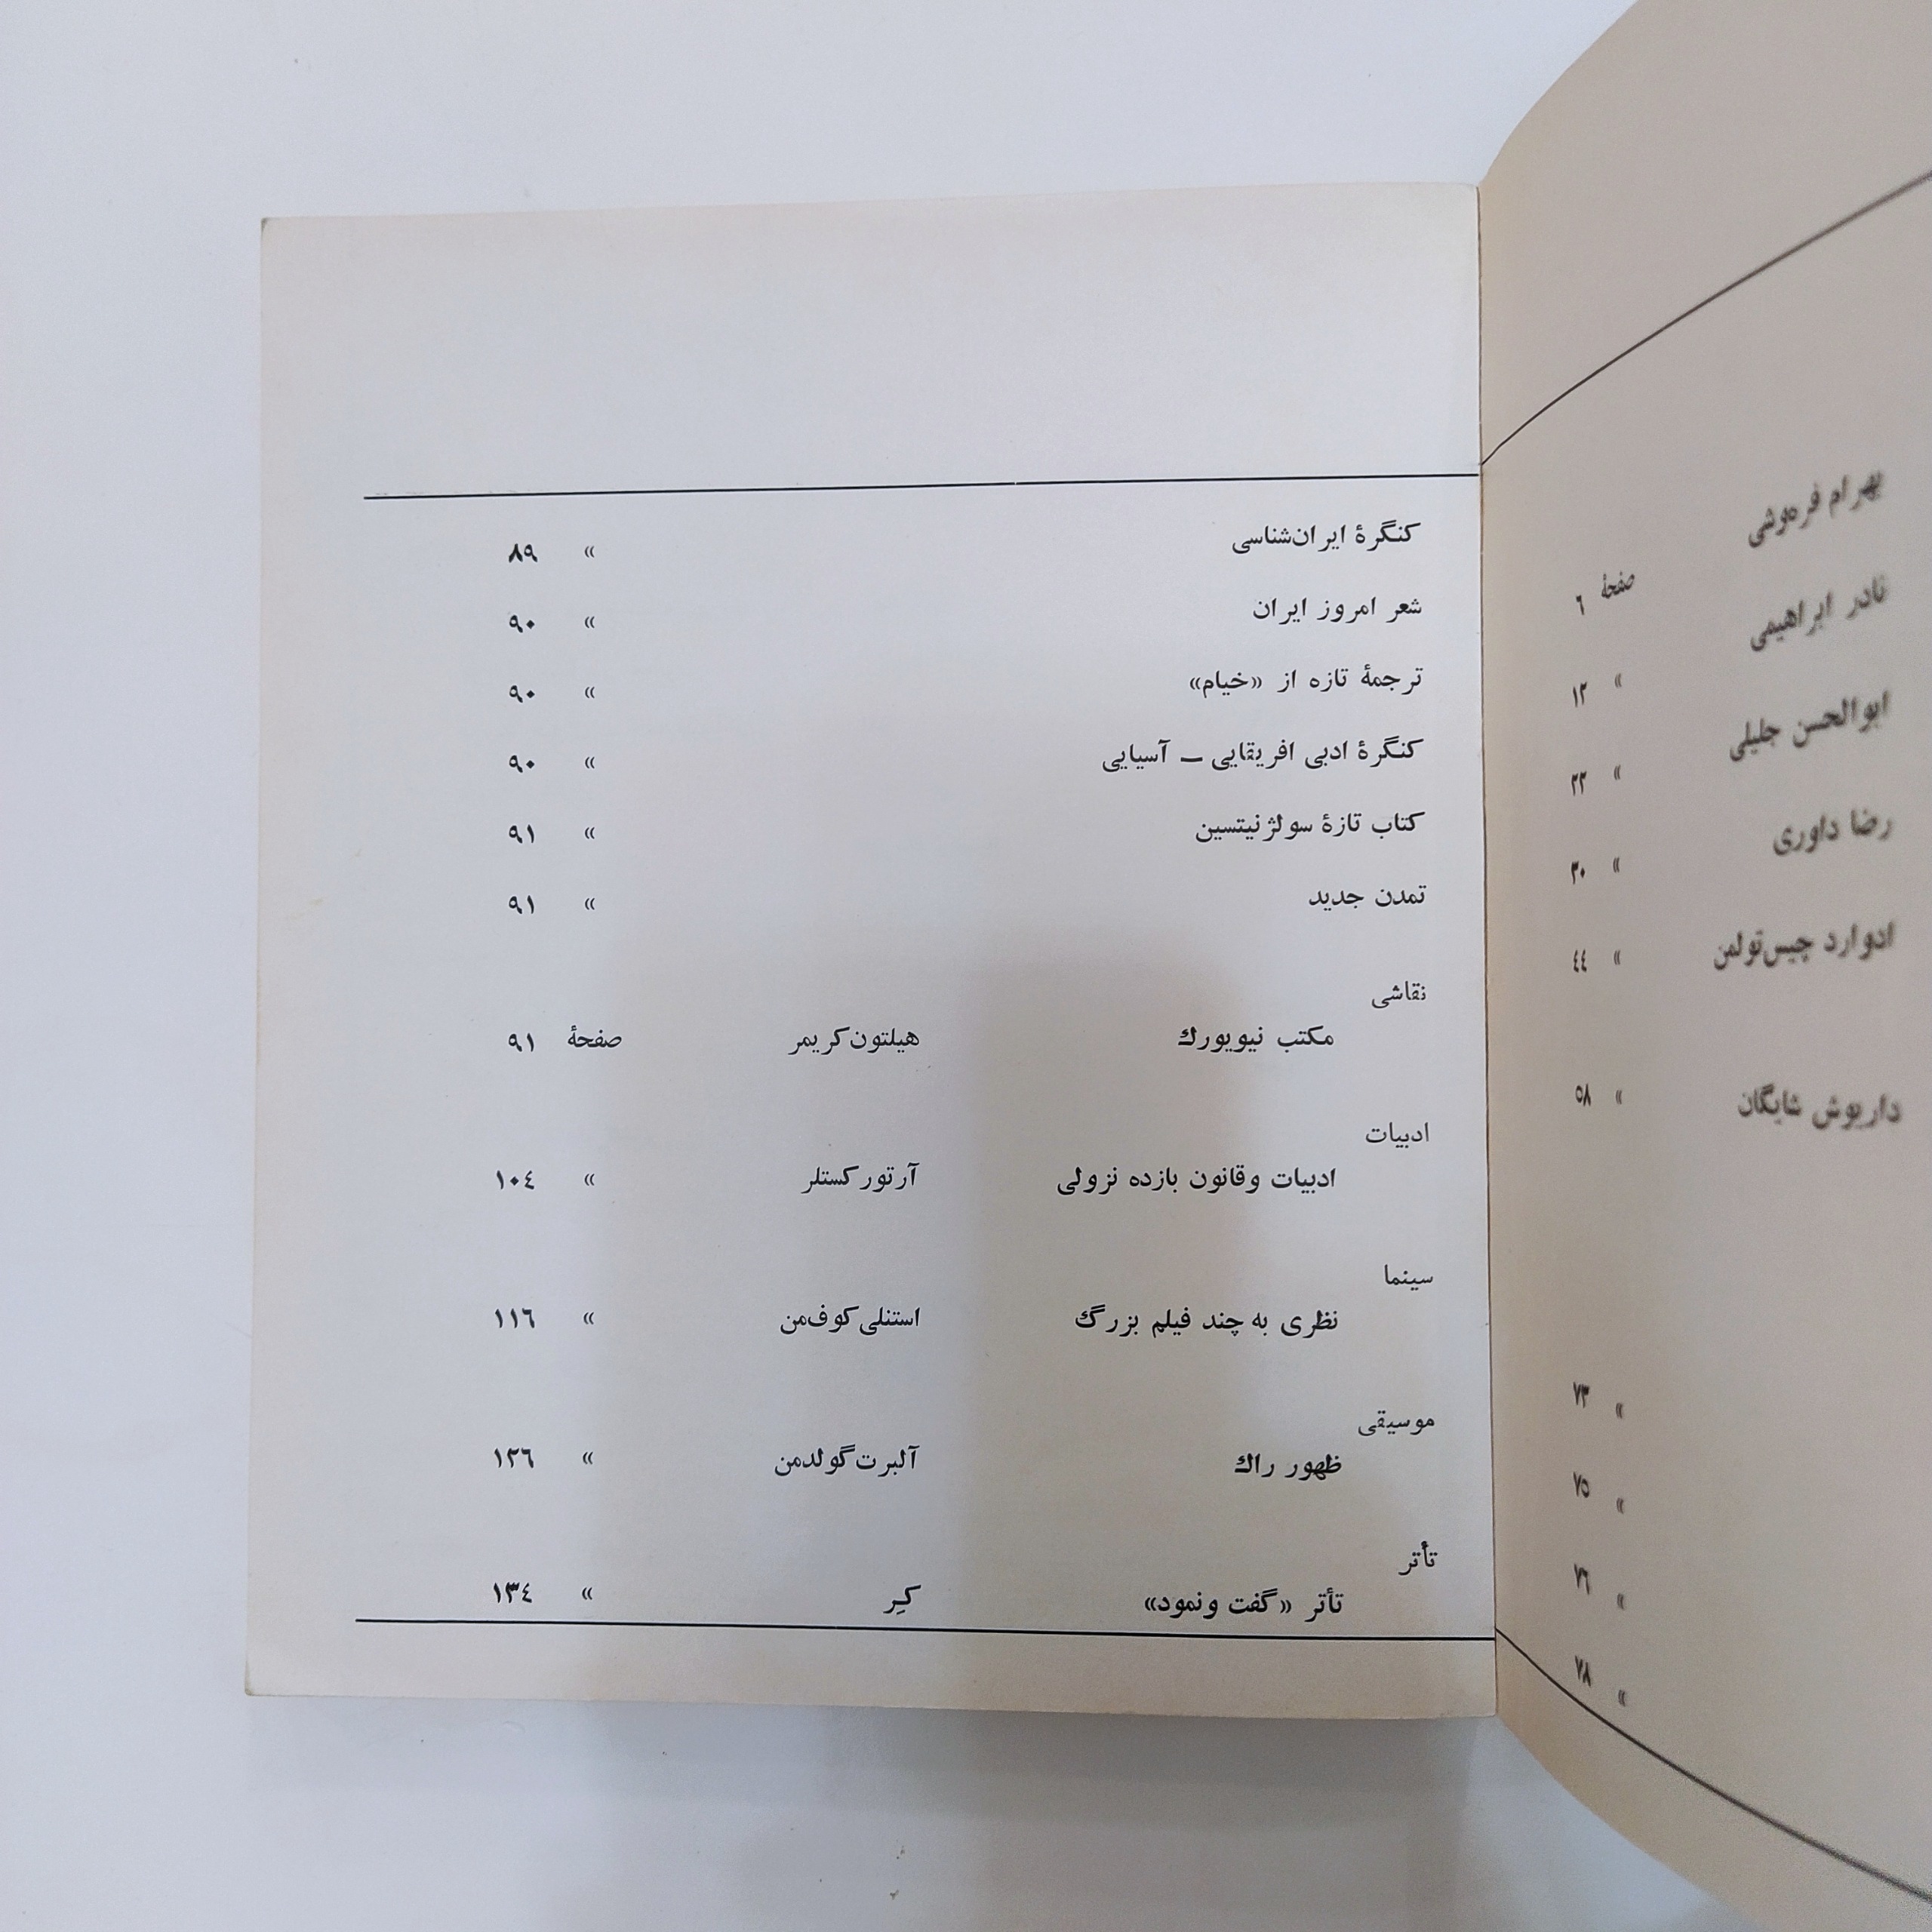 بهرام فره‌وشی
صفحهٔ ٦
نادر ابراهیمی
» ۱۲
ابوالحسن جلیلی
» ۲۲
رضا داوری
» ۳۰
ادوارد چیس‌تولمن
» ٤٤
داریوش شایگان
» ٥٨
» ۷۳
» ۷٥
» ۷٦
» ۷۸
کنگرهٔ ایران‌شناسی » ۸۹
شعر امروز ایران » ۹۰
ترجمهٔ تازه از «خیام» » ۹۰
کنگرهٔ ادبی افریقایی – آسیایی » ۹۰
کتاب تازهٔ سولژنیتسین » ۹۱
تمدن جدید » ۹۱
نقاشی
مکتب نیویورك هیلتون‌کریمر صفحهٔ ۹۱
ادبیات
ادبیات وقانون بازده نزولی آرتورکستلر » ۱۰٤
سینما
نظری به چند فیلم بزرگ استنلی‌کوف‌من » ۱۱٦
موسیقی
ظهور راك آلبرت‌گولدمن » ۱۲٦
تأتر
تأتر «گفت ونمود» کِر » ۱۳٤